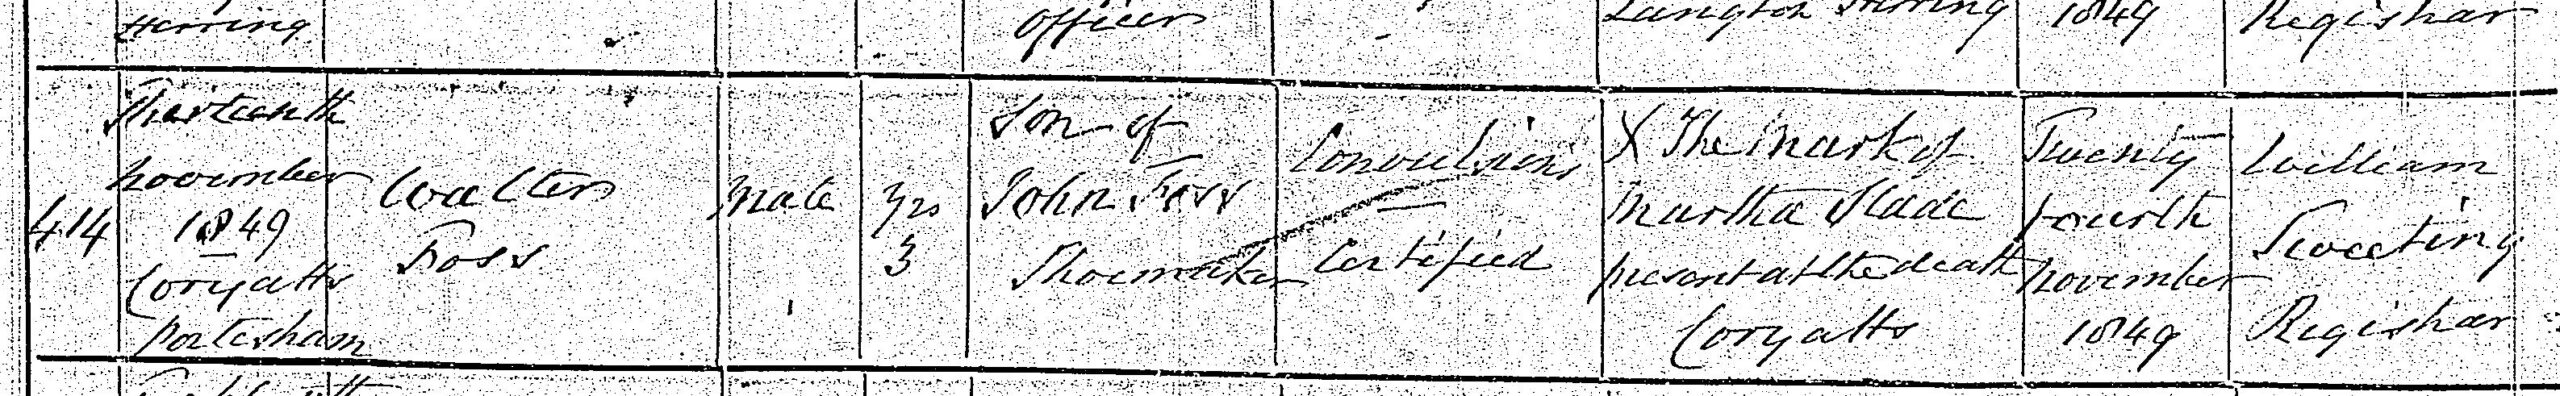 Herring
Officer
Langton Herring
1849
Registrar
414
Thirteenth
November
1849
Coryatts
Portesham
Walter
Foss
Male
Yrs
3
Son of
John Foss
Shoemaker
Convulsions
Certified
X The Mark of
Martha Slade
present at the death
Coryatts
Twenty
fourth
November
1849
William
Sweeting
Registrar